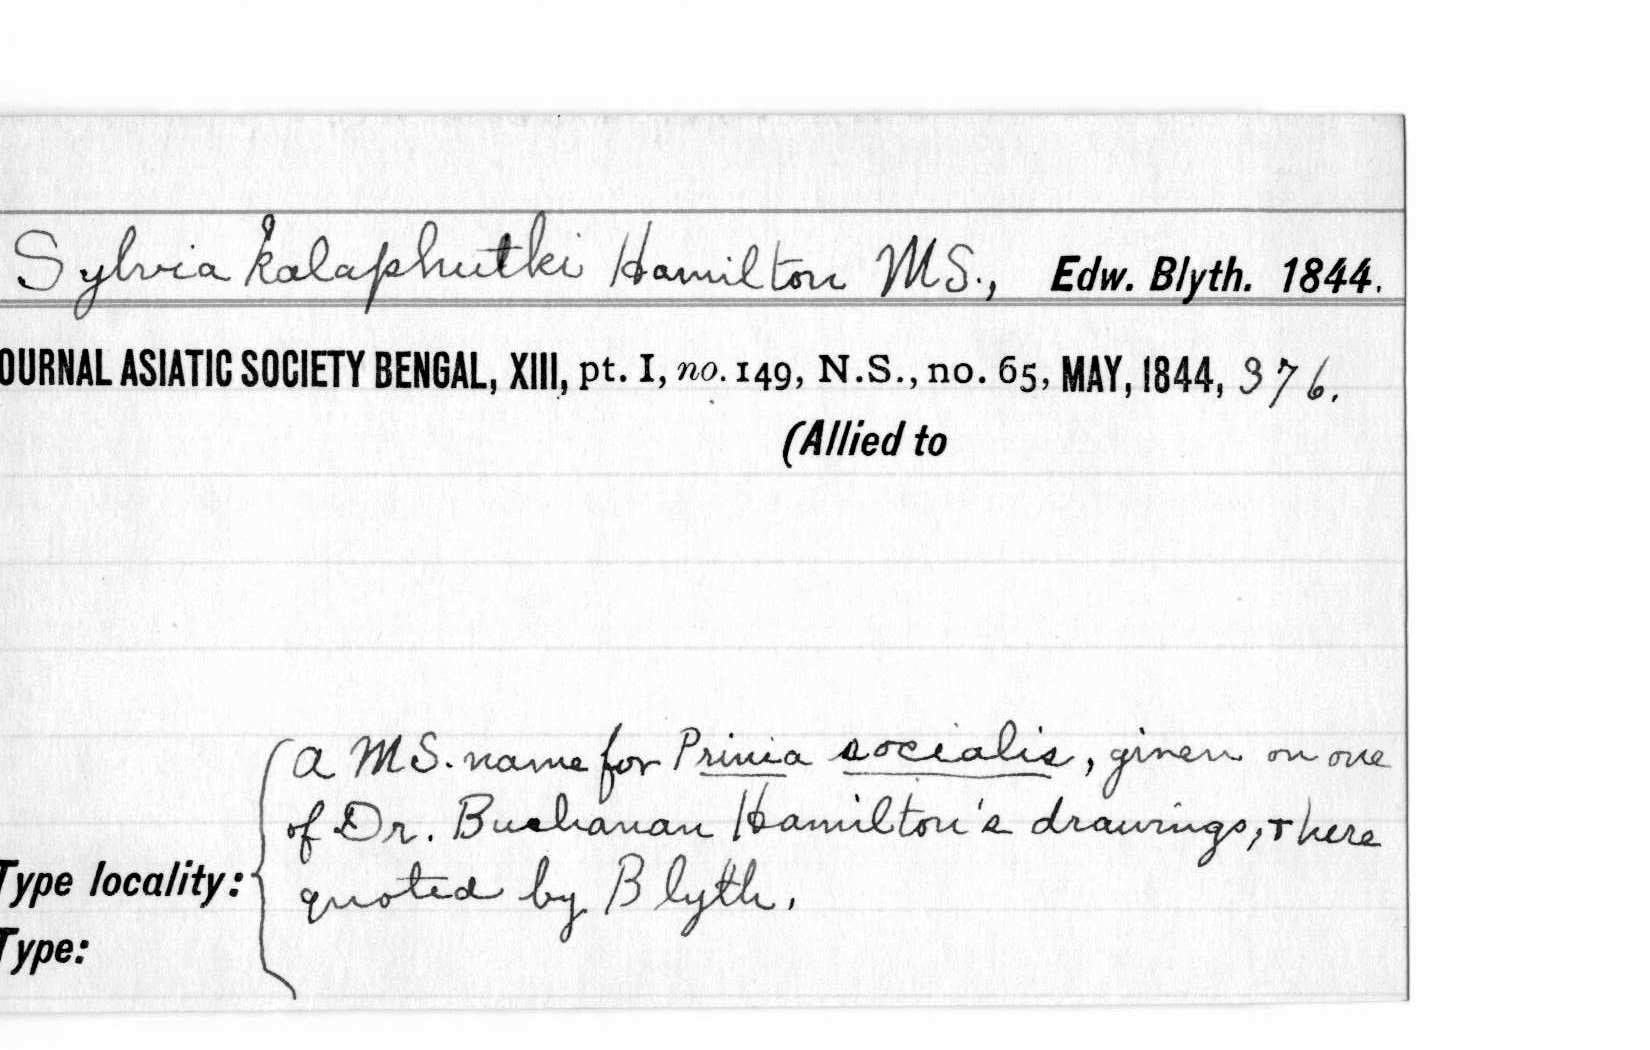 Sylvia kalaphutki Hamilton MS., Edw. Blyth. 1844.
OURNAL ASIATIC SOCIETY BENGAL, XIII, pt. I, no. 149, N.S., no. 65, MAY, 1844, 376.
(Allied to
a MS. name for Prinia socialis, given on one
of Dr. Buchanan Hamilton's drawings, + here
Type locality: quoted by Blyth.
Type: